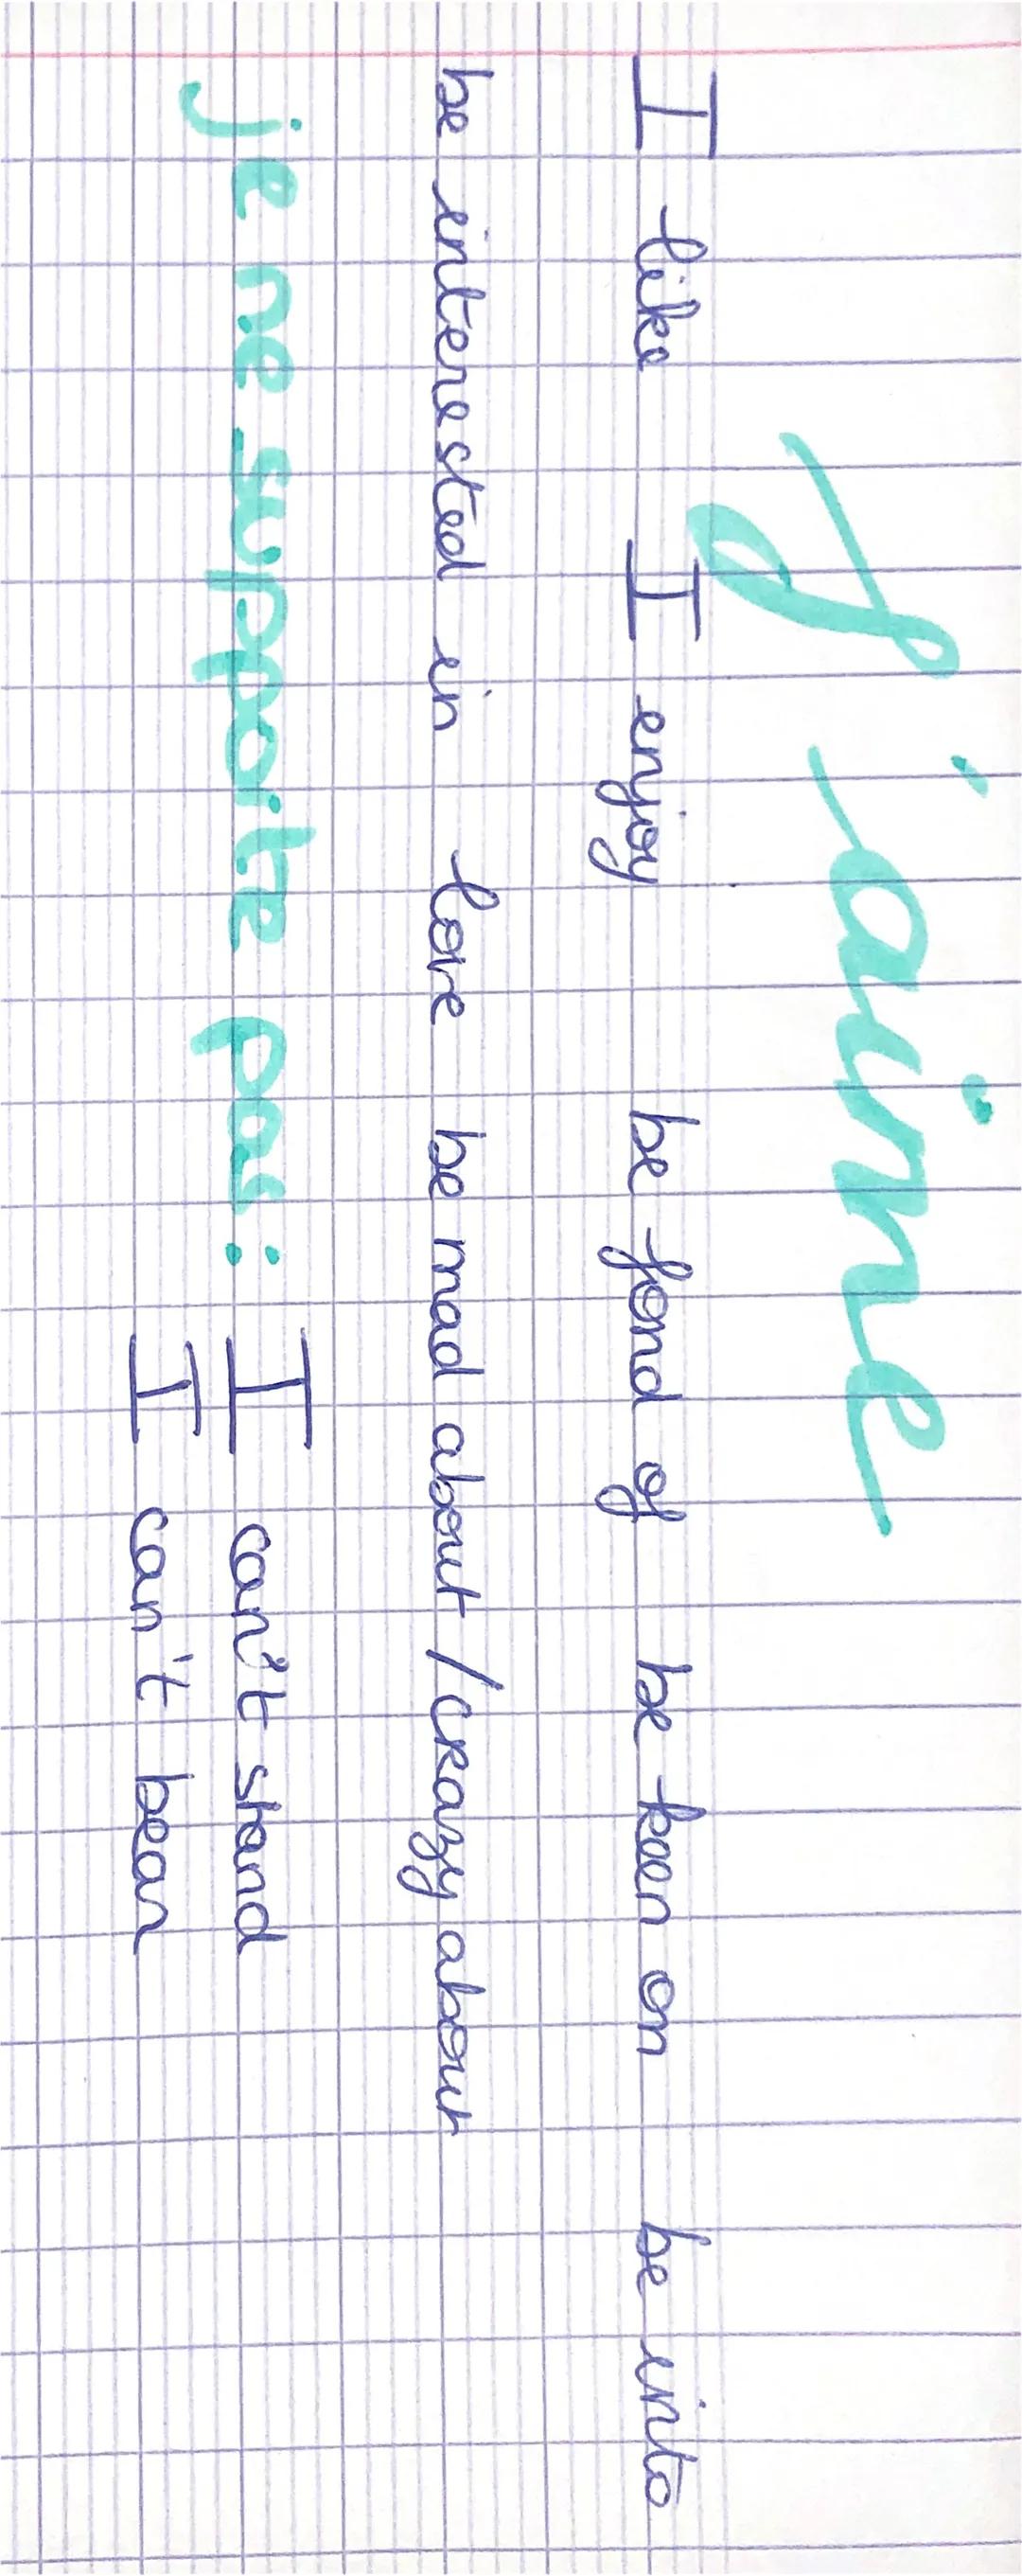 j'aime
I like I enjoy be fond of be keen on be into
be interested in love be mad about / crazy about
je ne supporte pas : I can't stand
I can't bear